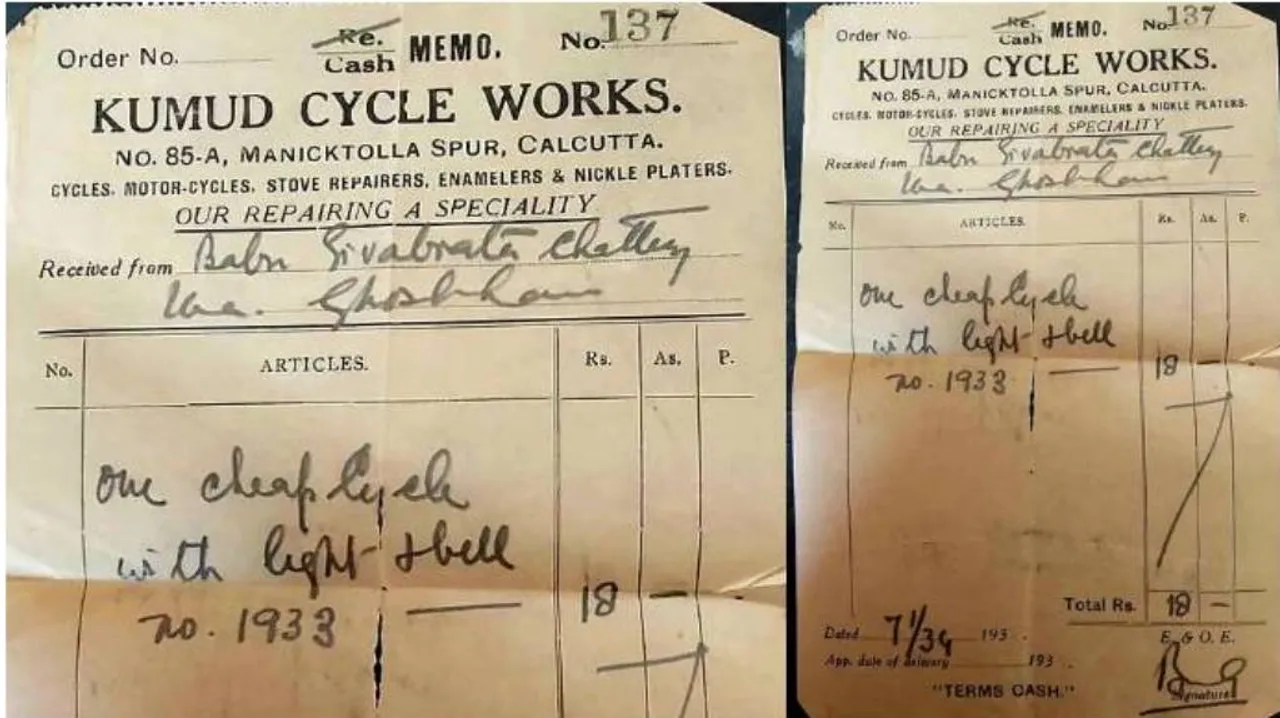 Order No.
Re.
Cash MEMO. No. 137
KUMUD CYCLE WORKS.
NO. 85-A, MANICKTOLLA SPUR, CALCUTTA.
CYCLES. MOTOR-CYCLES, STOVE REPAIRERS, ENAMELERS & NICKLE PLATERS.
OUR REPAIRING A SPECIALITY
Received from Babu Sivabrata
No. ARTICLES. Rs. As. P.
one cheap Cycle
with light & bell
no. 1933 — 18 —
Order No.
Re.
Cash MEMO. No. 137
KUMUD CYCLE WORKS.
NO. 85-A, MANICKTOLLA SPUR, CALCUTTA.
CYCLES. MOTOR-CYCLES, STOVE REPAIRERS, ENAMELERS & NICKLE PLATERS.
OUR REPAIRING A SPECIALITY
Received from Babu Sivabrata
No. ARTICLES. Rs. As. P.
one cheap Cycle
with light & bell
no. 1933 — 18 —
Total Rs. 18 —
Dated 7/1/34 193 .
E. & O. E.
App. date of delivery 193 .
"TERMS CASH."
Signature